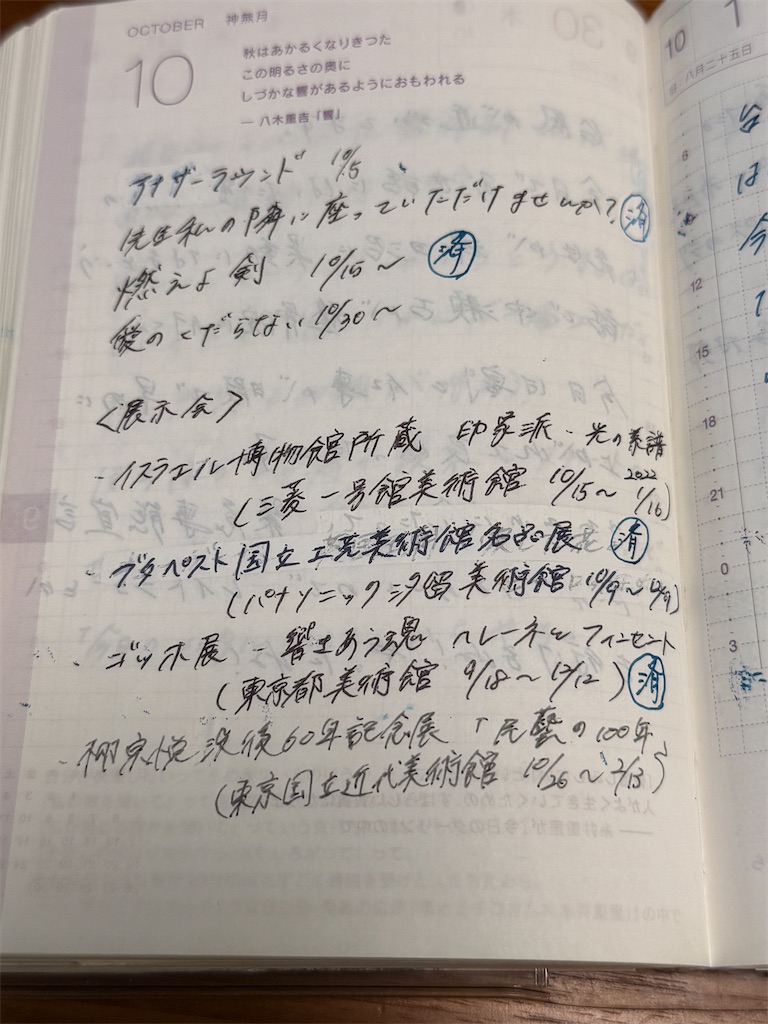 OCTOBER 神無月
10
秋はあかるくなりきつた
この明るさの奥に
しづかな響があるようにおもわれる
— 八木重吉「響」
アナザーラウンド 10/5
先生私の隣に座っていただけませんか? 済
燃えよ剣 10/15～ 済
愛のくだらない 10/30～
〈展示会〉
・イスラエル博物館所蔵 印象派・光の系譜
(三菱一号館美術館 10/15～ 2022 1/16)
・ブダペスト国立工芸美術館名品展 済
(パナソニック汐留美術館 10/9～
・ゴッホ展 ー響きあう魂 ヘレーネとフィンセント
(東京都美術館 9/18～12/12) 済
・柳宗悦没後60年記念展「民藝の100年」
(東京国立近代美術館 10/26～2/13)
10 1
八月二十五日
6
は
今
12
15
18
21
0
3